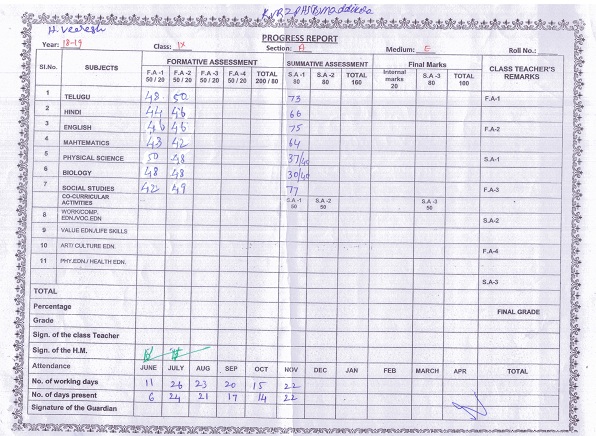 H. Veeresh
PROGRESS REPORT
Year: 18-19 Class: IX Section: A Medium: E Roll No.:
Sl.No. SUBJECTS FORMATIVE ASSESSMENT SUMMATIVE ASSESSMENT Final Marks CLASS TEACHER'S REMARKS
F.A -1 50 / 20 F.A -2 50 / 20 F.A -3 50 / 20 F.A -4 50 / 20 TOTAL 200 / 80 S.A -1 80 S.A -2 80 TOTAL 160 Internal marks 20 S.A -3 80 TOTAL 100
1 TELUGU 48 50 73 F.A-1
2 HINDI 44 46 66
3 ENGLISH 46 46 75 F.A-2
4 MAHTEMATICS 43 42 64
5 PHYSICAL SCIENCE 50 48 37/40 S.A-1
6 BIOLOGY 48 48 30/40
7 SOCIAL STUDIES 42 49 77 F.A-3
CO-CURRICULAR ACTIVITIES S.A -1 50 S.A -2 50 S.A -3 50
8 WORK/COMP. EDN./VOC.EDN S.A-2
9 VALUE EDN/LIFE SKILLS
10 ART/ CULTURE EDN. F.A-4
11 PHY.EDN./ HEALTH EDN.
S.A-3
TOTAL
Percentage FINAL GRADE
Grade
Sign. of the class Teacher
Sign. of the H.M.
Attendance JUNE JULY AUG SEP OCT NOV DEC JAN FEB MARCH APR TOTAL
No. of working days 11 26 23 20 15 22
No. of days present 6 24 21 17 14 22
Signature of the Guardian